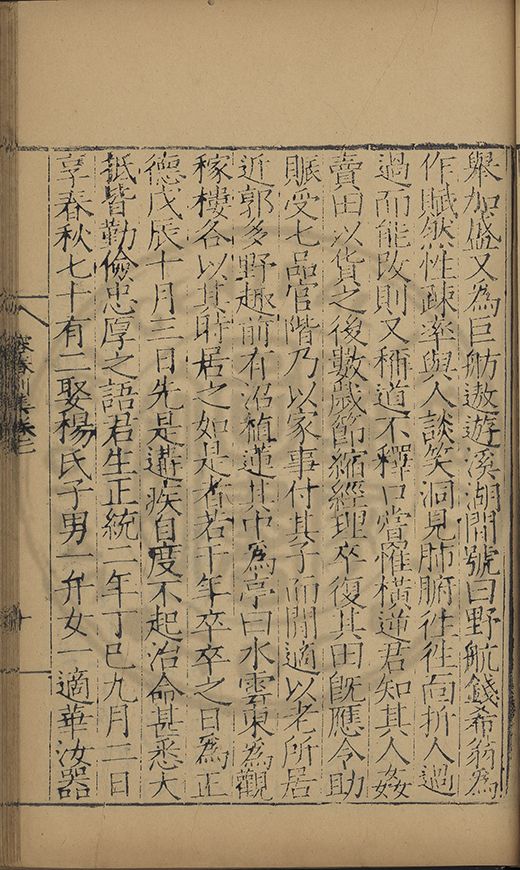 舉加盛又為巨舫遨遊溪湖間號曰野航錢希翁為
作賦然性疎率與人談笑洞見肺腑徃徃面折人過
過而能改則又稱道不釋口嘗罹橫逆君知其人姦
賣田以貨之後數歲節縮經理卒復其田旣應令助
賑受七品官階乃以家事付其子而閒適以老所居
近郭多野趣前有沼植蓮其中為亭曰水雲東為觀
稼樓各以其時居之如是者若干年卒卒之日為正
德戊辰十月三日先是遘疾自度不起治命甚悉大
抵皆勤儉忠厚之語君生正統二年丁巳九月二日
享春秋七十有二娶楊氏子男一弁女一適華汝器